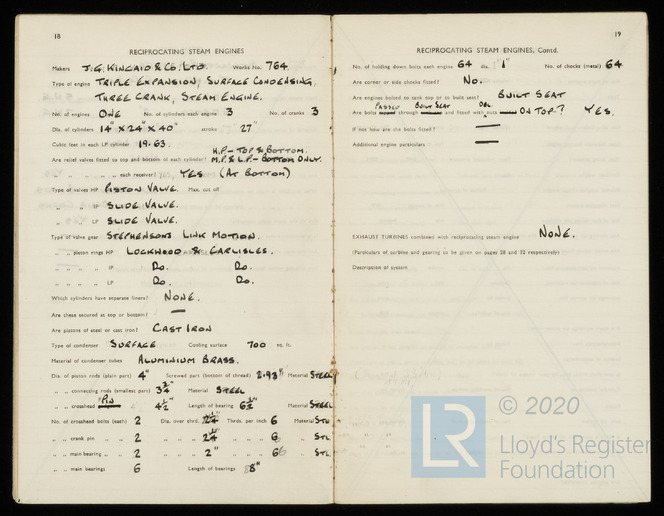 18
RECIPROCATING STEAM ENGINES
Makers J.G. KINCAID & CO. LTD. Works No. 764.
Type of engine TRIPLE EXPANSION, SURFACE CONDENSING,
THREE CRANK, STEAM ENGINE.
No. of engines ONE No. of cylinders each engine 3 No. of cranks 3
Dia. of cylinders 14" X 24" X 40" stroke 27"
Cubic feet in each LP cylinder 19.63.
H.P – TOP & BOTTOM.
Are relief valves fitted to top and bottom of each cylinder? M.P. & L.P. – BOTTOM ONLY.
" " " each receiver? YES (AT BOTTOM)
Type of valves HP PISTON VALVE. Max. cut off
" " IP SLIDE VALVE.
" " LP SLIDE VALVE.
Type of valve gear STEPHENSONS LINK MOTION.
" " piston rings HP LOCKWOOD & CARLISLES.
" " " " IP DO. DO.
" " " " LP DO. DO.
Which cylinders have separate liners? NONE.
Are these secured at top or bottom? —
Are pistons of steel or cast iron? CAST IRON
Type of condenser SURFACE Cooling surface 700 sq. ft.
Material of condenser tubes ALUMINIUM BRASS.
Dia. of piston rods (plain part) 4" Screwed part (bottom of thread) 2.93" Material STEEL
" " connecting rods (smallest part) 3¾" Material STEEL
PIN
" " crosshead 4½" Length of bearing 6½" Material STEEL
No. of crosshead bolts (each) 2 Dia. over thrd. 2¼" Thrds. per inch 6 Material STL
" " crank pin " 2 " " 2¼" " " " 6 " STL
" " main bearing " 2 " " 2" " " " 6 " STL
" " main bearings 6 Length of bearings 8"
19
RECIPROCATING STEAM ENGINES, Contd.
No. of holding down bolts each engine 64 dia. 1" No. of chocks (metal) 64
Are corner or side chocks fitted? NO.
Are engines bolted to tank top or to built seat? BUILT SEAT
PASSED BUILT SEAT DBL.
Are bolts through and fitted with nuts ON TOP? YES.
If not how are the bolts fitted? —
Additional engine particulars —
EXHAUST TURBINES combined with reciprocating steam engine NONE.
(Particulars of turbine and gearing to be given on pages 28 and 32 respectively)
Description of system
LR
© 2020
Lloyd's Register
Foundation